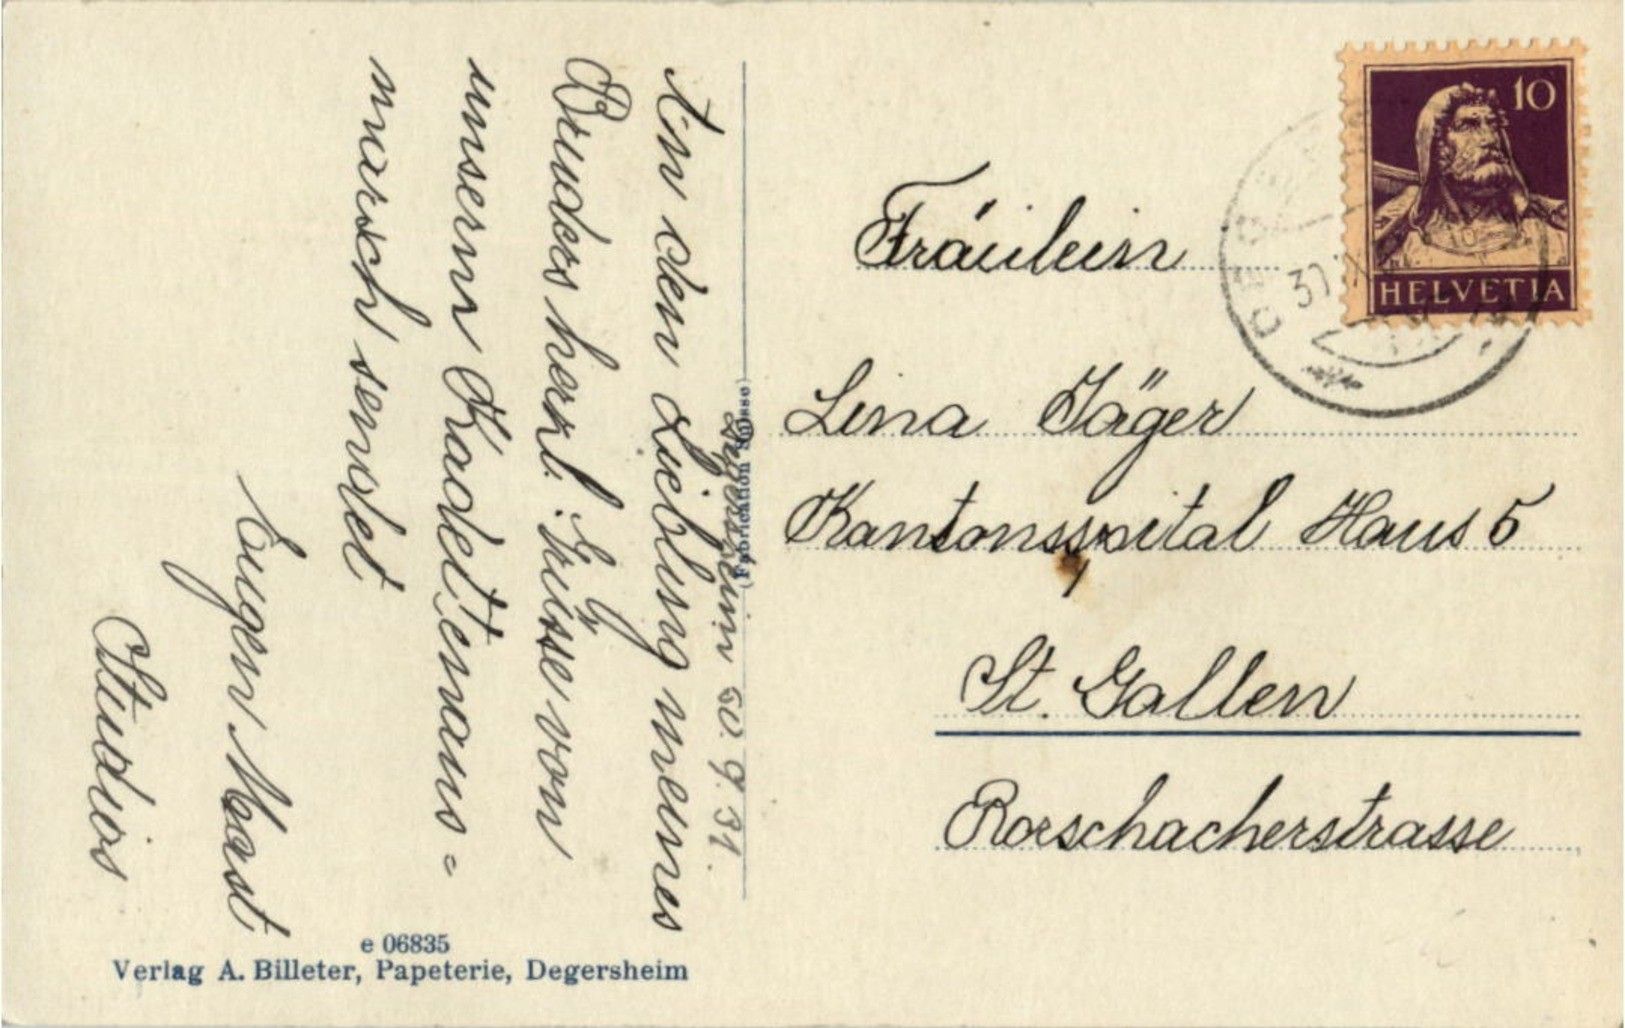 Degersheim 30. 9. 31
An den Liebling meines
Bruders herzl. Grüsse von
unserm Kadettenaus=
marsch sendet
Eugen Mast
Studios
(Fabrication Suisse)
e 06835
Verlag A. Billeter, Papeterie, Degersheim
10
HELVETIA
Fräulein
Lina Jäger
Kantonsspital Haus 5
St. Gallen
Rorschacherstrasse